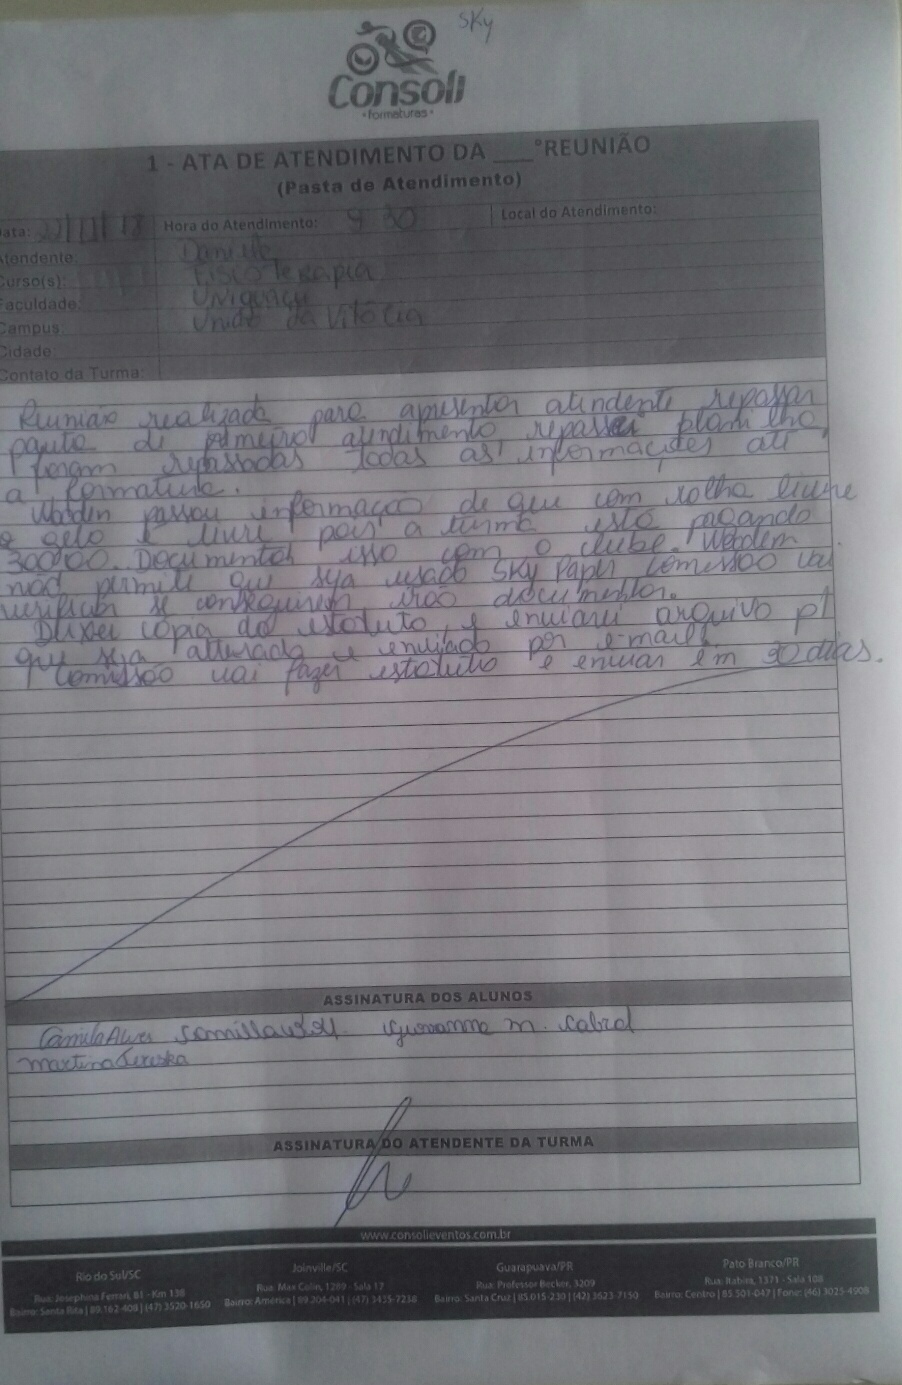 SKy
Consoli
• formaturas •
1 - ATA DE ATENDIMENTO DA ____°REUNIÃO
(Pasta de Atendimento)
Data: Hora do Atendimento: 9 30 Local do Atendimento:
Atendente:
Curso(s): Fisioterapia
Faculdade: Uniguaçu
Campus: União da Vitória
Cidade:
Contato da Turma:
Reunião realizada para apresentar atendente repassar
pauta de primeiro atendimento repassei planilha
foram repassadas todas as informações até
a formatura.
passou informação de que com rolha livre
o gelo é livre pois a turma está pagando
30000. Documentar isso com o clube.
não permite que seja usado SKy Paper comissão vai
verificar se conseguirem irão documentar.
Deixei cópia do estatuto, e enviarei arquivo p/
que seja alterado e enviado por e-mail.
Comissão vai fazer estatuto e enviar em 90 dias.
ASSINATURA DOS ALUNOS
Camila Alves M. Cabral
Martina
ASSINATURA DO ATENDENTE DA TURMA
www.consolieventos.com.br
Rio do Sul/SC Joinville/SC Guarapuava/PR Pato Branco/PR
Rua: Josephina Ferrari, 81 - Km 138 Rua: Max Colin, 1289 - Sala 17 Rua: Professor Becker, 3209 Rua: Itabira, 1371 - Sala 108
Bairro: Santa Rita | 89.162-408 | (47) 3520-1650 Bairro: América | 89.204-041 | (47) 3435-7238 Bairro: Santa Cruz | 85.015-230 | (42) 3623-7150 Bairro: Centro | 85.501-047 | Fone: (46) 3025-4909